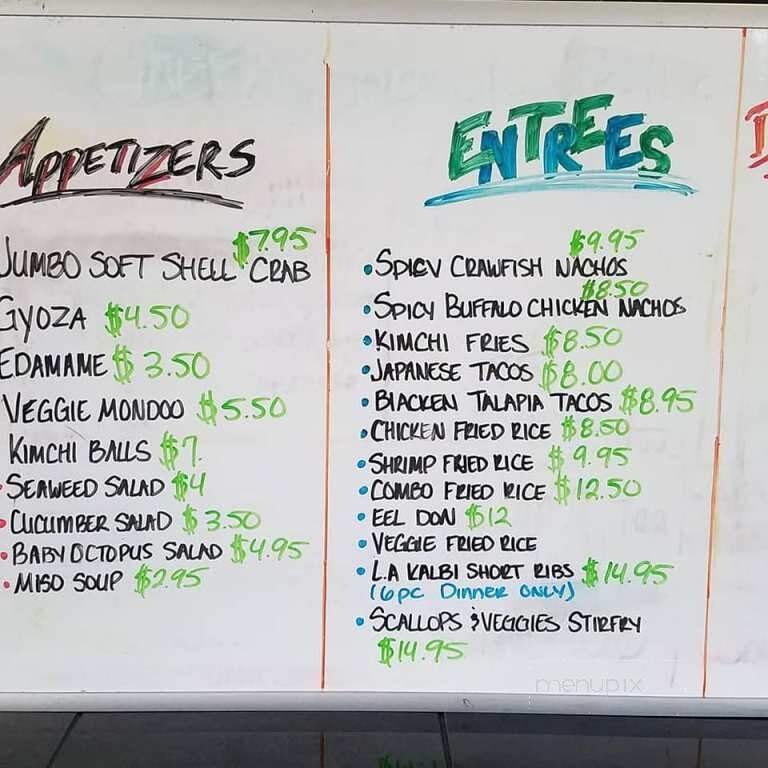 APPETIZERS
$7.95
JUMBO SOFT SHELL CRAB
GYOZA $4.50
EDAMAME $3.50
VEGGIE MONDOO $5.50
KIMCHI BALLS $7.
• SEAWEED SALAD $4
• CUCUMBER SALAD $3.50
• BABY OCTOPUS SALAD $4.95
• MISO SOUP $2.95
ENTREES
$9.95
• SPICY CRAWFISH NACHOS
$8.50
• SPICY BUFFALO CHICKEN NACHOS
• KIMCHI FRIES $8.50
• JAPANESE TACOS $8.00
• BLACKEN TALAPIA TACOS $8.95
• CHICKEN FRIED RICE $8.50
• SHRIMP FRIED RICE $9.95
• COMBO FRIED RICE $12.50
• EEL DON $12
• VEGGIE FRIED RICE
• L.A KALBI SHORT RIBS $14.95
(6pc DINNER ONLY)
• SCALLOPS & VEGGIES STIRFRY
$14.95
menupix